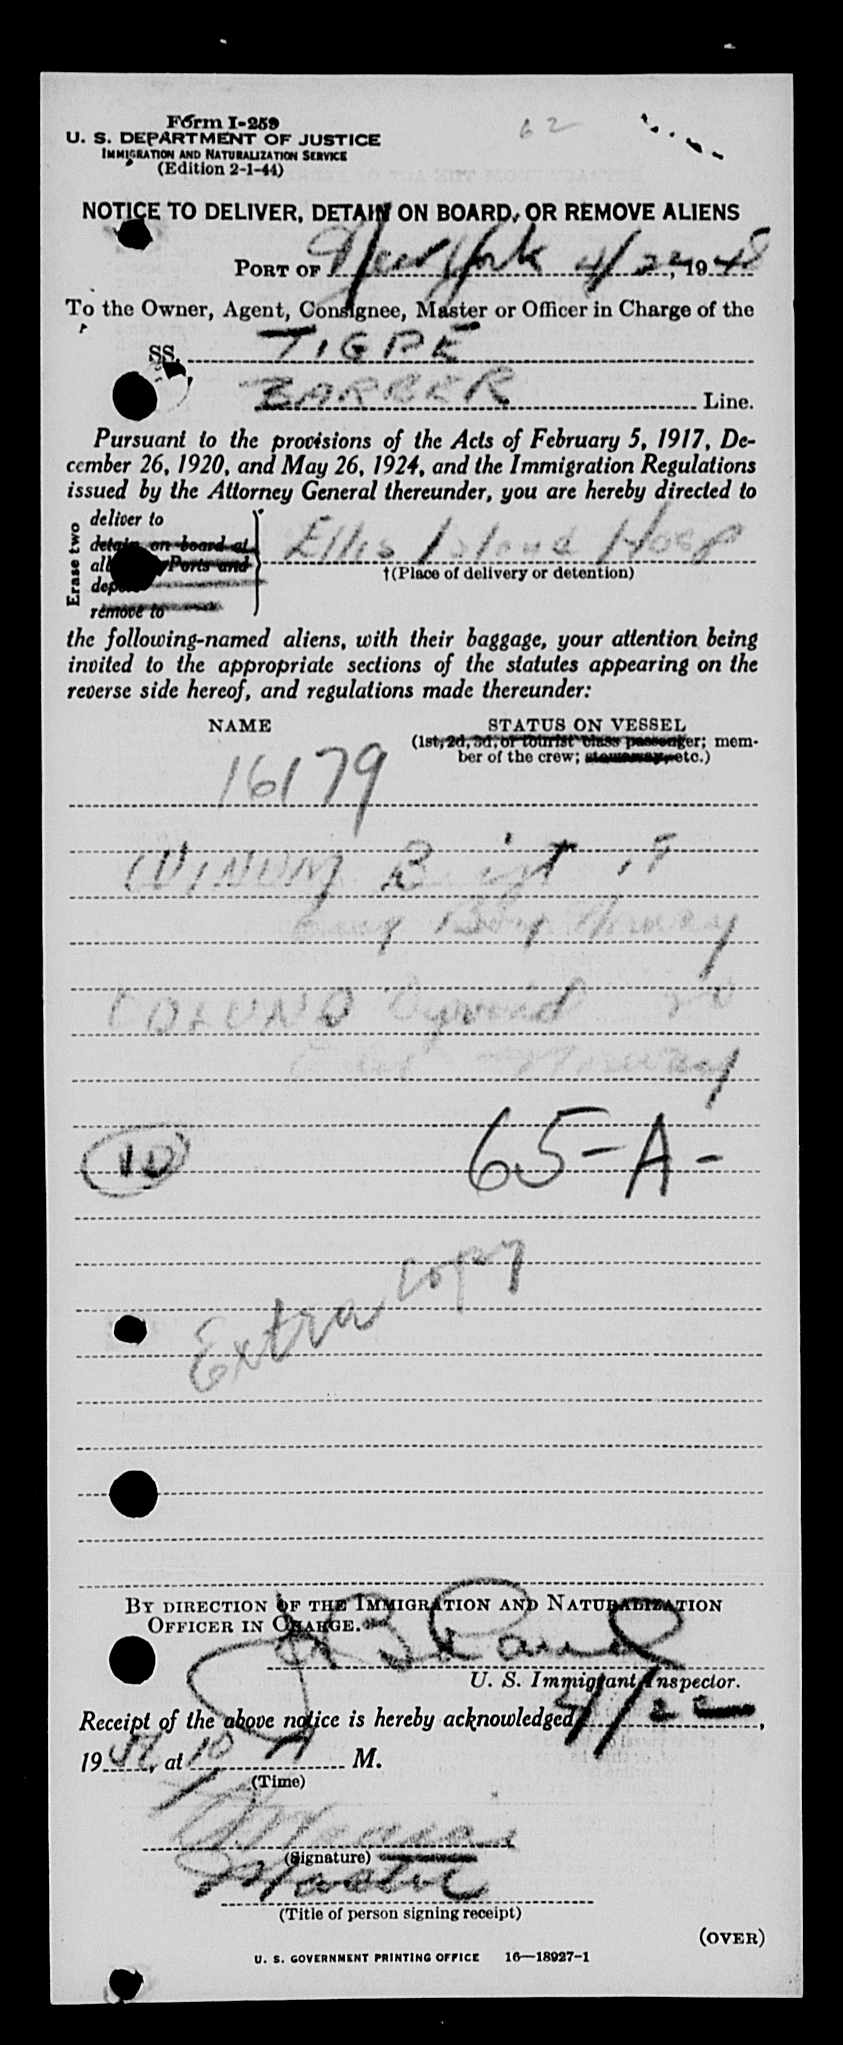 62
Form I-259
U. S. DEPARTMENT OF JUSTICE
IMMIGRATION AND NATURALIZATION SERVICE
(Edition 2-1-44)
NOTICE TO DELIVER, DETAIN ON BOARD, OR REMOVE ALIENS
PORT OF New York 4/22, 1948
To the Owner, Agent, Consignee, Master or Officer in Charge of the
SS. TIGRE
BARBER Line.
Pursuant to the provisions of the Acts of February 5, 1917, De-
cember 26, 1920, and May 26, 1924, and the Immigration Regulations
issued by the Attorney General thereunder, you are hereby directed to
Erase two
deliver to
detain on board at
all Ports and
deport
remove to
Ellis Island Hosp
†(Place of delivery or detention)
the following-named aliens, with their baggage, your attention being
invited to the appropriate sections of the statutes appearing on the
reverse side hereof, and regulations made thereunder:
NAME STATUS ON VESSEL
(1st, 2d, 3d, or tourist class passenger; mem-
ber of the crew; stowaway, etc.)
16179
Boy Norway
Norway
10 65-A-
Extra copy
BY DIRECTION OF THE IMMIGRATION AND NATURALIZATION
OFFICER IN CHARGE.
U. S. Immigrant Inspector.
Receipt of the above notice is hereby acknowledged 4/22,
1948, at 10 A M.
(Time)
(Signature)
Master
(Title of person signing receipt)
(OVER)
U. S. GOVERNMENT PRINTING OFFICE 16—18927-1